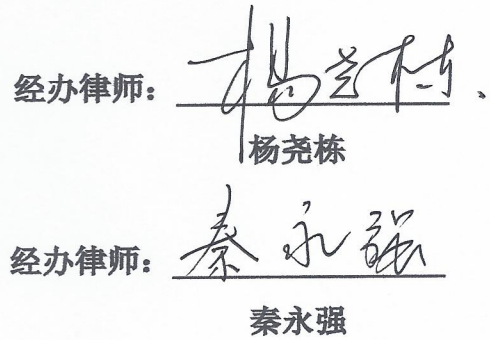 经办律师：楊尧栋
杨尧栋
经办律师：秦永强
秦永强